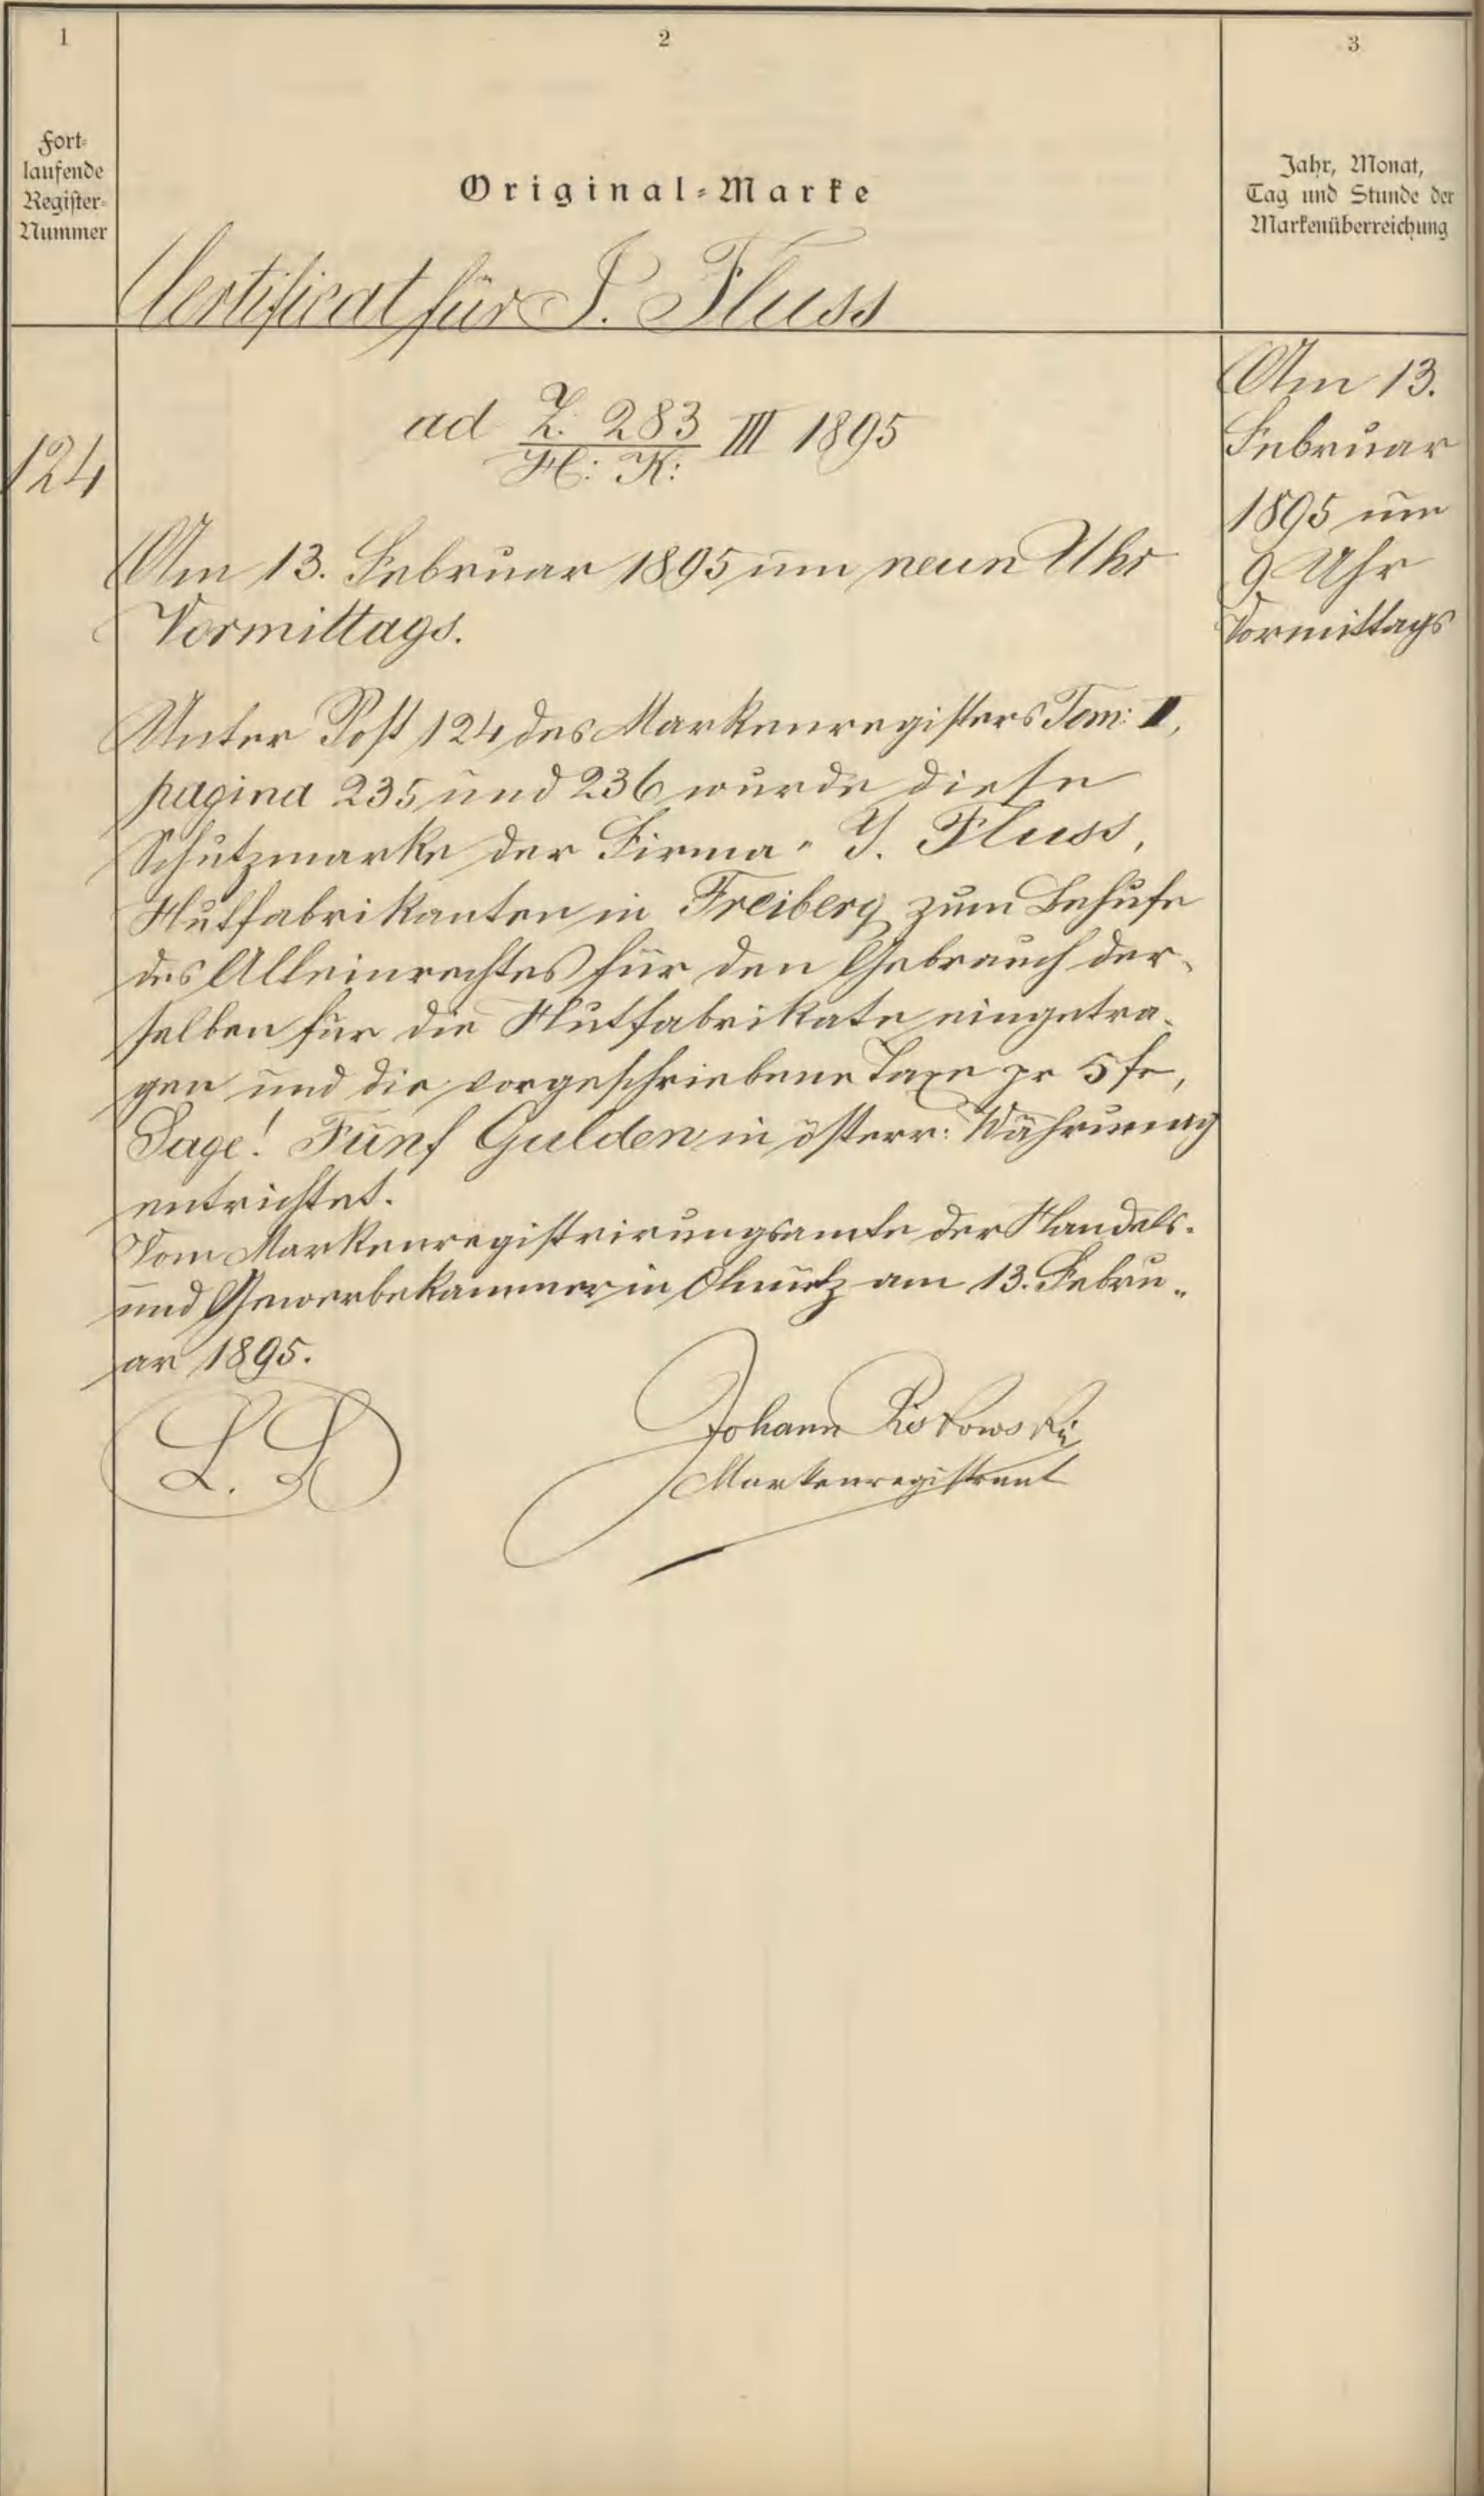 1
2
3
Fort-
laufende
Register-
Nummer
Original-Marke
Jahr, Monat,
Tag und Stunde der
Markenüberreichung
Certificat für I. Fluss
124
ad Z. 283 III 1895
H: K:
Am 13. Februar 1895 um neun Uhr
Vormittags.
Unter Post 124 des Markenregisters Tom: II,
pagina 235 und 236 wurde diese
Schutzmarke der Firma "I. Fluss,
Hutfabrikanten in Freiberg zum Behufe
des Alleinrechtes für den Gebrauch der-
selben für die Hutfabrikate eingetra-
gen und die vorgeschriebene Taxe pr 5 fr,
Sage! Fünf Gulden in österr: Währung
entrichtet.
Vom Markenregistrirungsamte der Handels-
und Gewerbekammer in Olmütz am 13. Febru-
ar 1895.
L. S.
Johann
Markenregistrant
Am 13.
Februar
1895 um
9 Uhr
Vormittags